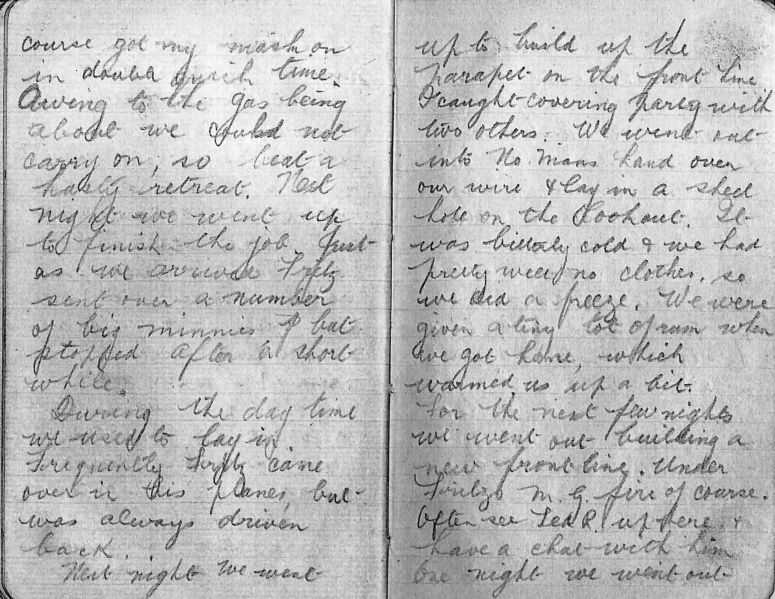 course got my mask on
in double quick time.
Owing to the gas being
about we could not
carry on, so beat a
hasty retreat. Next
night we went up
to finish the job. Just
as we arrived Fritz
sent over a number
of big minnies & but
stopped after a short
while.
During the day time
we used to lay in
Frequently Fritz came
over in his planes, but
was always driven
back.
Next night we went
up to build up the
parapet on the front line
I caught covering party with
two others. We went out
into No Mans Land over
our wire & lay in a shell
hole on the lookout. It
was bitterly cold & we had
pretty well no clothes, so
we did a freeze. We were
given a tiny tot of rum when
we got home, which
warmed us up a bit.
For the next few nights
we went out building a
new front line. Under
Fritzs M. G. fire of course.
Often see Ted R. up here &
have a chat with him
One night we went out